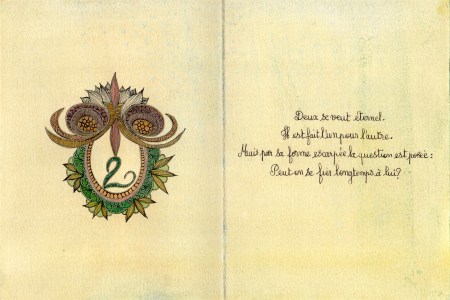 2
Deux se veut éternel.
Il est fait l'un pour l'autre.
Mais par sa forme escarpée la question est posée :
Peut on se fier longtemps à lui?